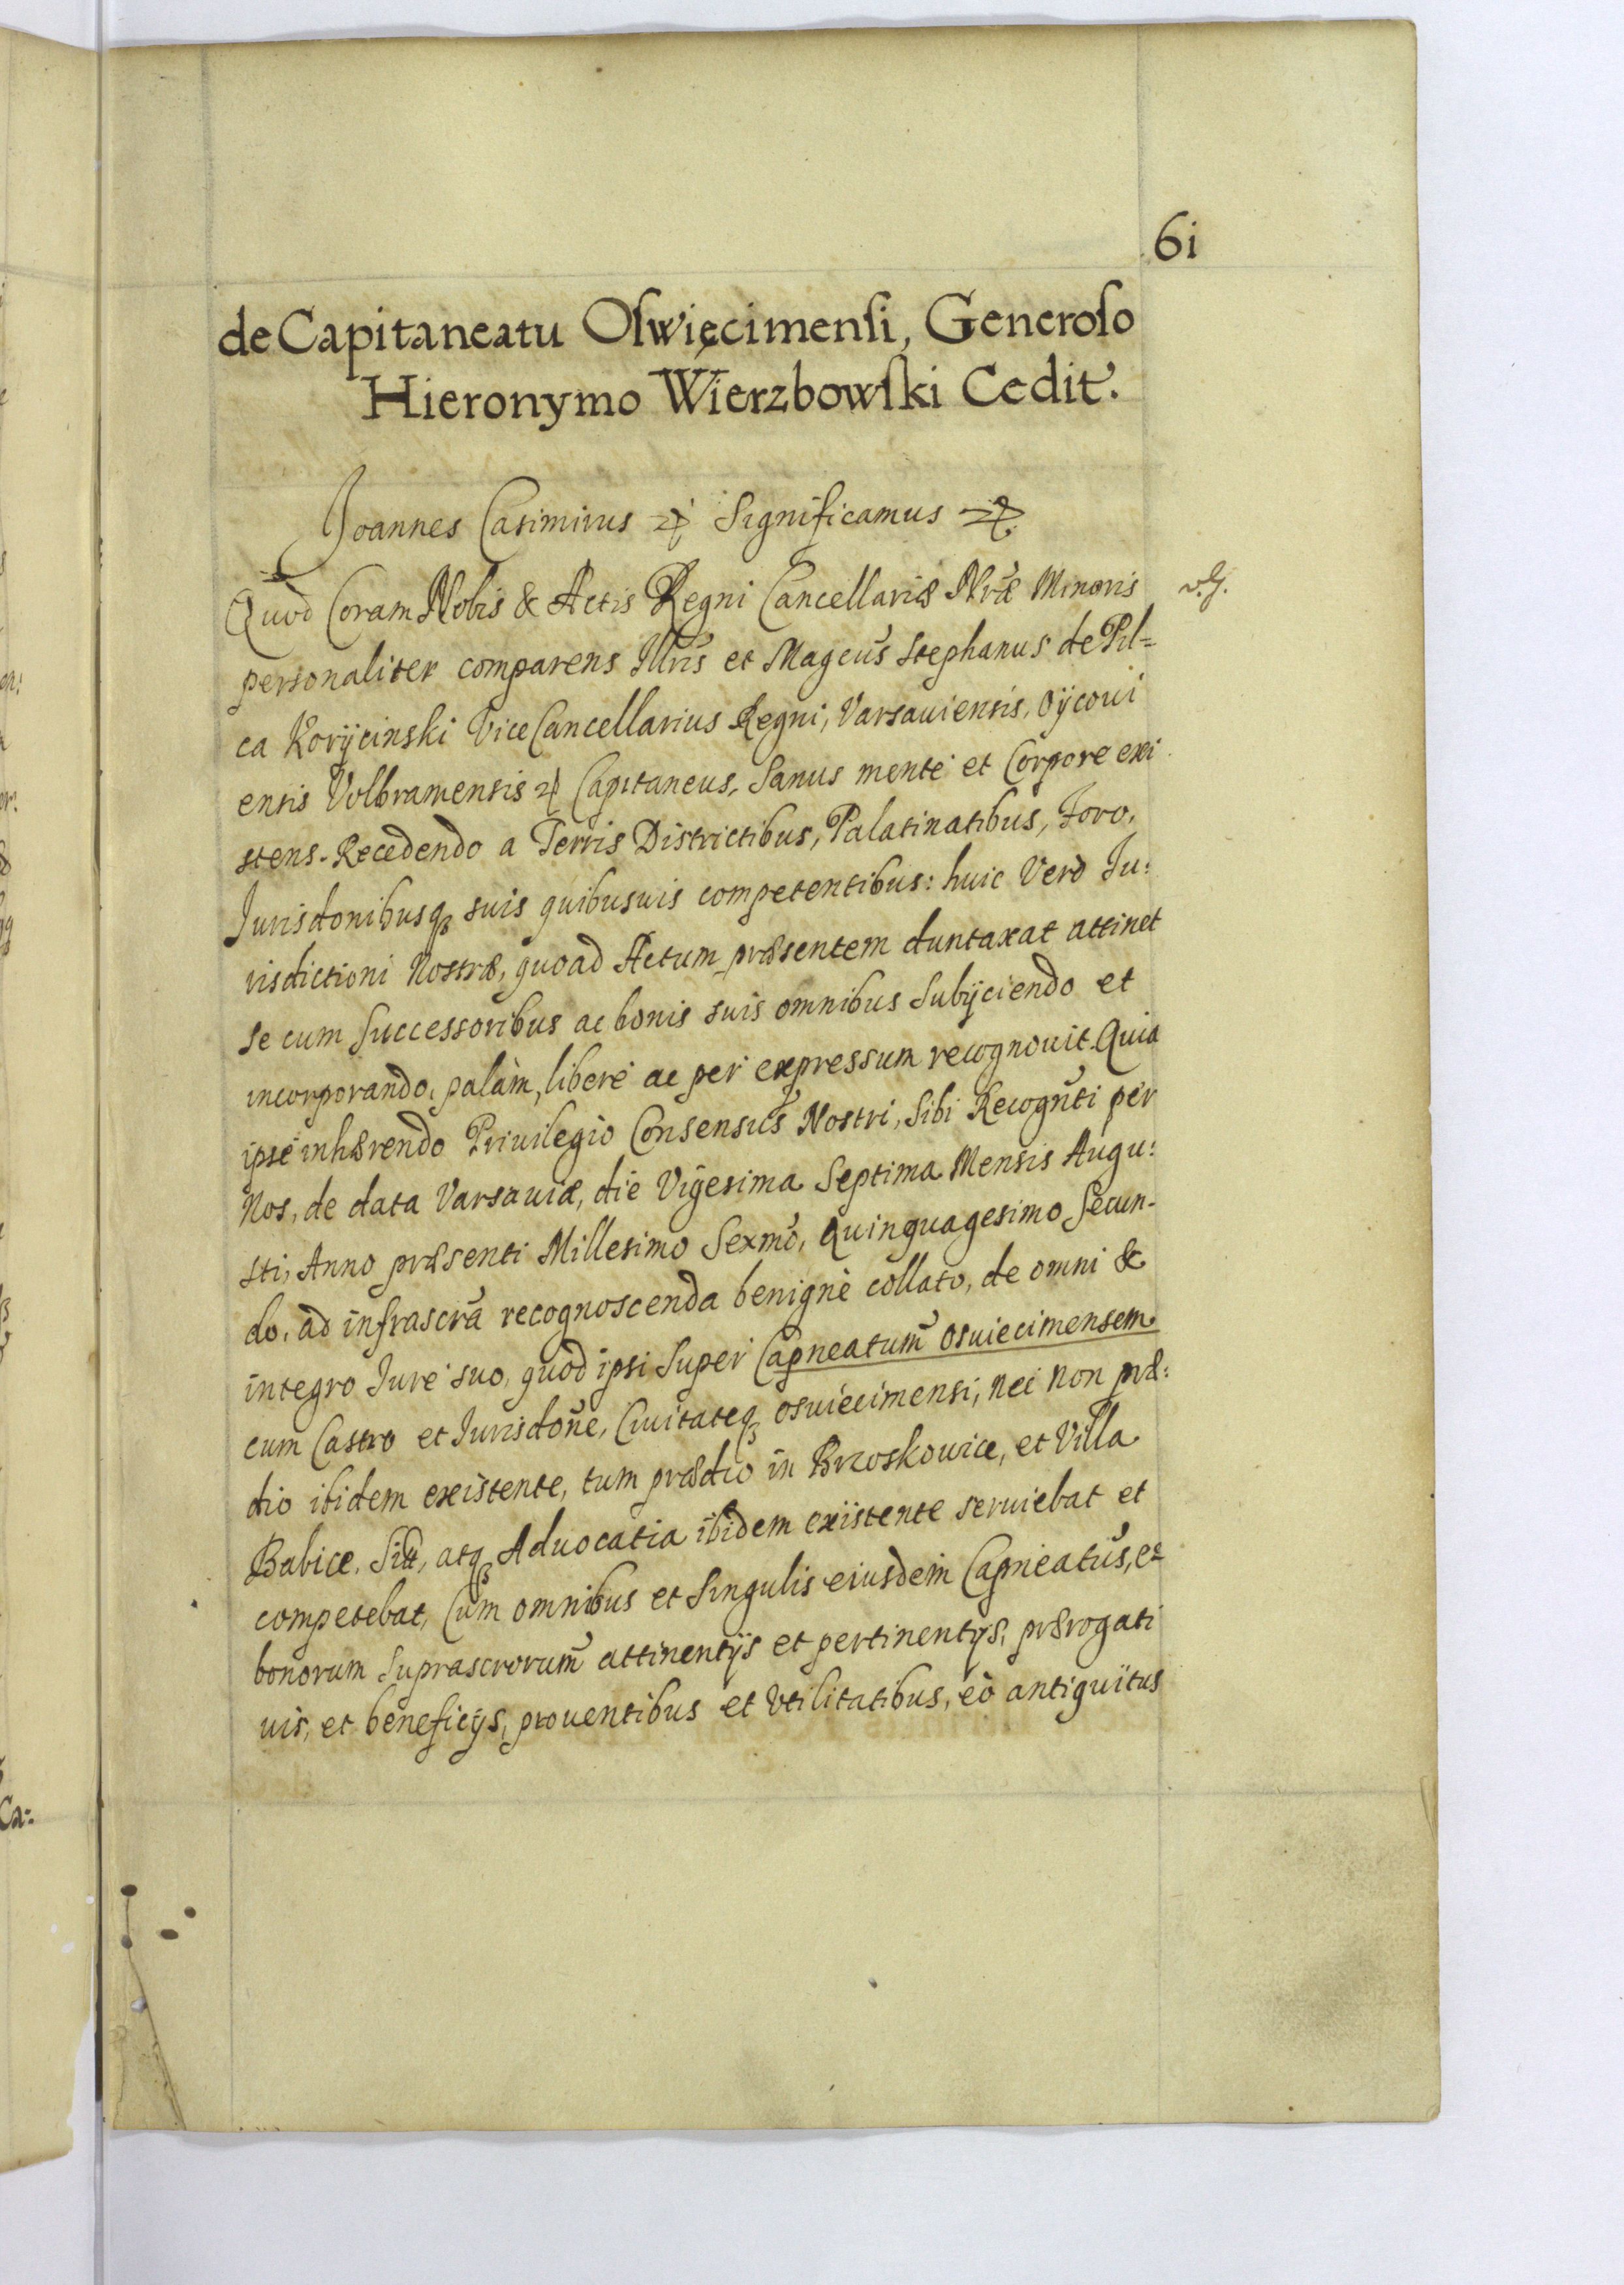 61
de Capitaneatu Oswięcimensi, Generoso
Hieronymo Wierzbowski Cedit.
Joannes Casimirus Significamus
Quod Coram Nobis & Actis Regni Cancellariæ Nræ Minoris
v. G.
personaliter comparens Illris et Magcus Stephanus de Pil=
ca Korycinski Vice Cancellarius Regni, Varsauiensis, Oÿcoui
ensis Volbramensis Capitaneus, Sanus mente et Corpore exi
stens. Recedendo a Terris Districtibus, Palatinatibus, Foro,
Jurisdonibusq suis quibusuis competentibus: huic Verò Ju:
risdictioni Nostræ, quoad Actum præsentem duntaxat attinet
se cum Successoribus ac bonis suis omnibus Subÿciendo et
incorporando, palàm, liberè ac per expressum recognouit. Quia
ipse inhærendo Priuilegio Consensus Nostri, Sibi Recognti per
Nos, de data Varsauiæ, die Vigesima Septima Mensis Augu:
sti, Anno præsenti Millesimo Sexmo, Quinquagesimo Secun-
do, ad infrascra recognoscenda benignè collato, de omni &
integro Jure suo, quod ipsi Super Capneatum osuiecimensem
cum Castro et Jurisdone, Ciuitateq osuiecimensi, nec non præ:
dio ibidem existente, tum prædio in Brzoskowice, et Villa
Babice. atq Aduocatia ibidem existente seruiebat et
competebat, Cum omnibus et Singulis eiusdem Capneatus, et
bonorum Suprascrorum attinentÿs et pertinentÿs, prærogati
uis, et beneficÿs, prouentibus et Vtilitatibus, eò antiquitus